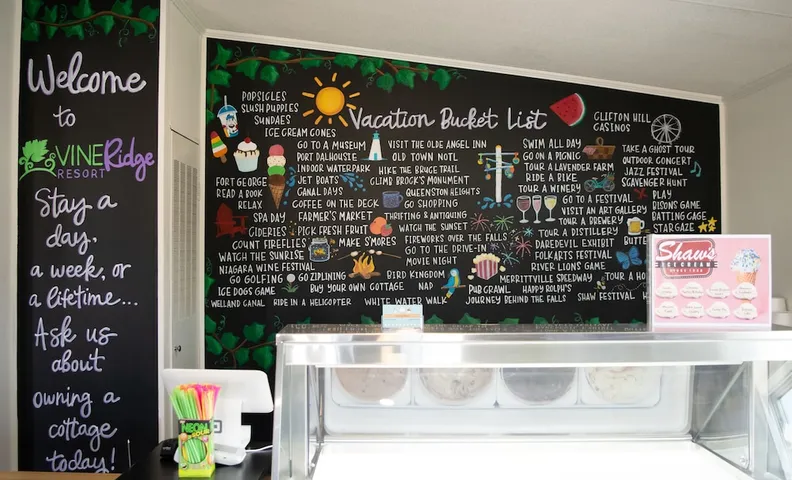 Welcome
to
VINERidge
RESORT
Stay a
day,
a week, or
a lifetime...
Ask us
about
owning a
cottage
today!
Vacation Bucket List
POPSICLES
SLUSH PUPPIES
SUNDAES
ICE CREAM CONES
GO TO A MUSEUM
PORT DALHOUSIE
INDOOR WATERPARK
JET BOATS
CANAL DAYS
COFFEE ON THE DECK
FORT GEORGE
READ A BOOK
RELAX
SPA DAY
FARMER'S MARKET
CIDERIES
PICK FRESH FRUIT
COUNT FIREFLIES
MAKE S'MORES
WATCH THE SUNRISE
NIAGARA WINE FESTIVAL
GO GOLFING
GO ZIPLINING
ICE DOGS GAME
BUY YOUR OWN COTTAGE
WELLAND CANAL
RIDE IN A HELICOPTER
WHITE WATER WALK
VISIT THE OLDE ANGEL INN
OLD TOWN NOTL
HIKE THE BRUCE TRAIL
CLIMB BROCK'S MONUMENT
QUEENSTON HEIGHTS
GO SHOPPING
THRIFTING & ANTIQUING
WATCH THE SUNSET
FIREWORKS OVER THE FALLS
GO TO THE DRIVE-IN
MOVIE NIGHT
BIRD KINGDOM
NAP
PUB CRAWL
JOURNEY BEHIND THE FALLS
SWIM ALL DAY
GO ON A PICNIC
TOUR A LAVENDER FARM
RIDE A BIKE
TOUR A WINERY
GO TO A FESTIVAL
VISIT AN ART GALLERY
TOUR A BREWERY
TOUR A DISTILLERY
DAREDEVIL EXHIBIT
FOLKARTS FESTIVAL
RIVER LIONS GAME
MERRITTVILLE SPEEDWAY
TOUR A
HAPPY ROLPH'S
SHAW FESTIVAL
CLIFTON HILL
CASINOS
TAKE A GHOST TOUR
OUTDOOR CONCERT
JAZZ FESTIVAL
SCAVENGER HUNT
PLAY
BISONS GAME
BATTING CAGE
STARGAZE
Shaw's
ICE CREAM
NEON